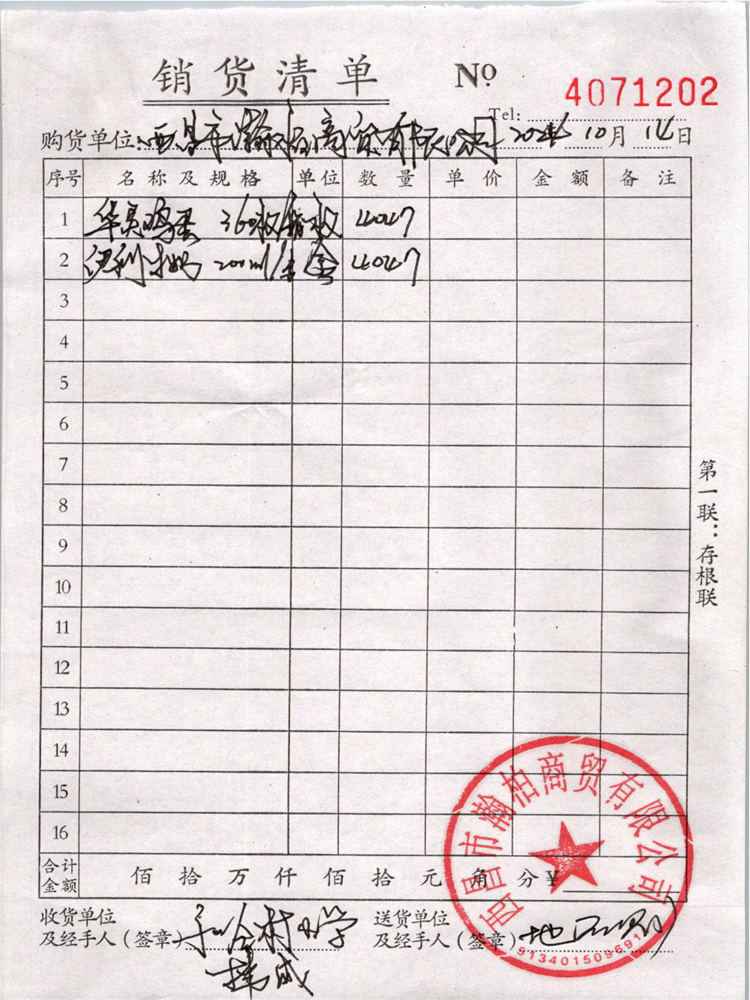 销货清单 Nº 4071202
Tel:
购货单位:西昌市瀚柏商贸有限公司 2024年10月14日
序号 名称及规格 单位 数量 单价 金额 备注
1 华奥鸡蛋 360枚/箱 枚 4047
2 伊利 200ml/盒 盒 4047
3
4
5
6
7
8
9
10
11
12
13
14
15
16
合计金额 佰 拾 万 仟 佰 拾 元 角 分 ¥
收货单位
及经手人(签章) 合村小学
送货单位
及经手人(签章)
第一联:存根联
西昌市瀚柏商贸有限公司